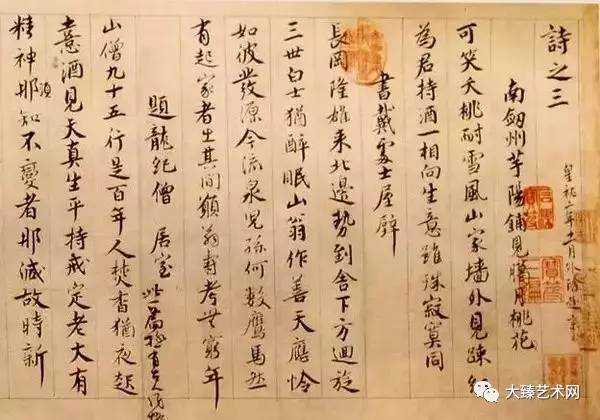 詩之三
皇祐二年十一月外除赴京
南劒州芋陽鋪見臘月桃花
可笑夭桃耐雪風山家墻外見踈紅
為君持酒一相向生意雖殊寂寞同
書戴處士屋壁
長岡隆雄來北邊勢到舍下方迴旋
三世白士猶醉眠山翁作善天應憐
如彼發源今流泉兒孫何數鷹馬然
有起家者出其間願翁壽考無窮年
題龍紀僧居室 此一篇極有古人風格
山僧九十五行是百年人焚香猶夜起
憙酒見天真生平持戒定老大有
精神那須知不變者那減故時新
大臻艺术网